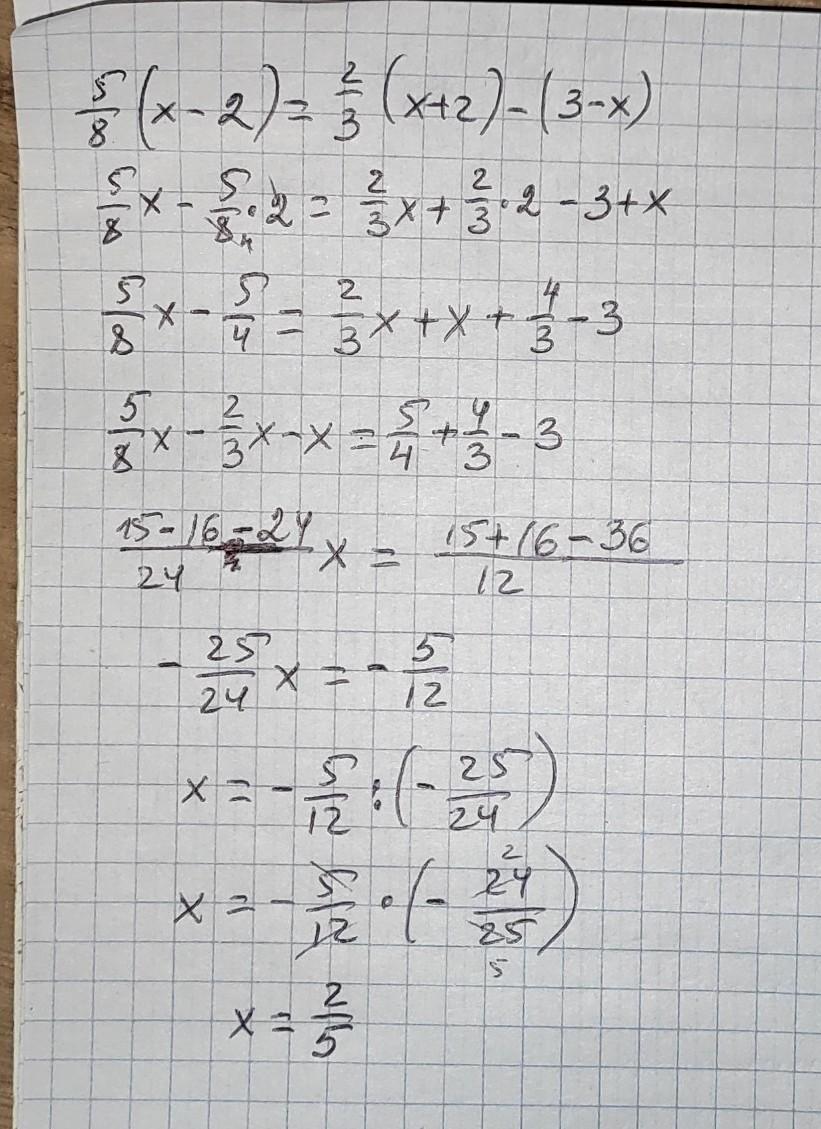 5/8 (x - 2) = 2/3 (x+2) - (3-x)
5/8 x - 5/8 · 2 = 2/3 x + 2/3 · 2 - 3 + x
5/8 x - 5/4 = 2/3 x + x + 4/3 - 3
5/8 x - 2/3 x - x = 5/4 + 4/3 - 3
(15-16-24)/24 x = (15+16-36)/12
- 25/24 x = - 5/12
x = - 5/12 : (- 25/24)
x = - 5/12 · (- 24/25)
x = 2/5